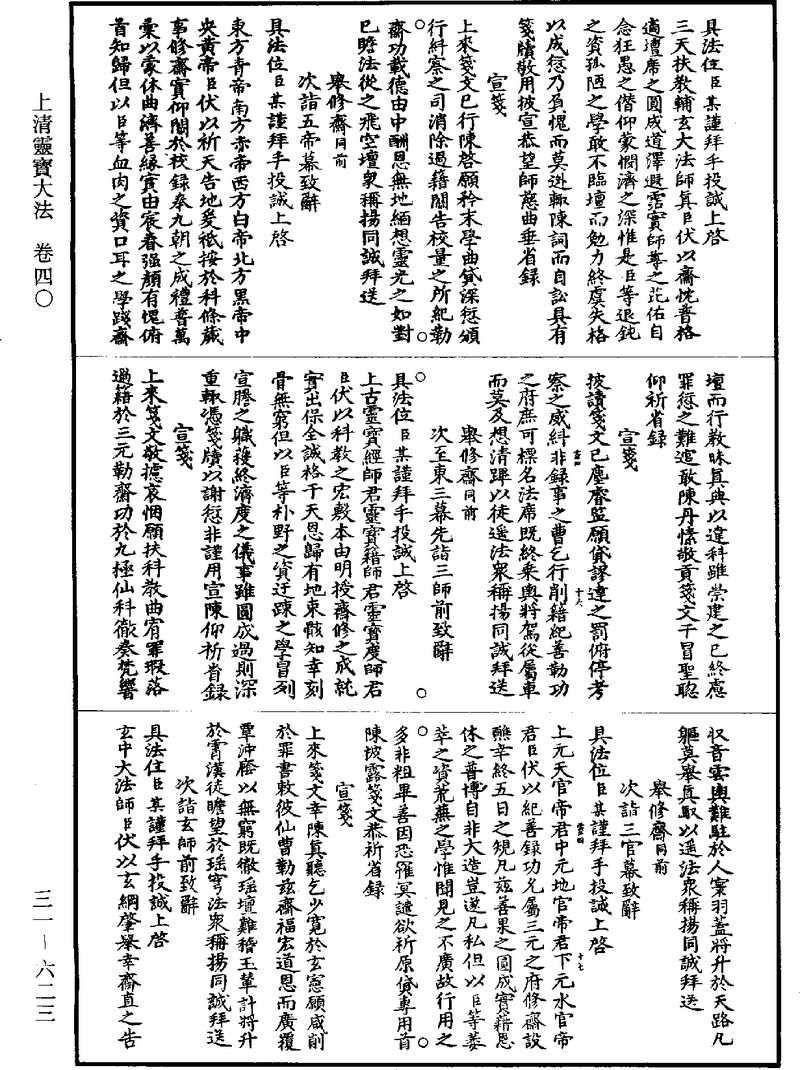 上清靈寶大法 卷四〇
三一－六二三
具法位臣某謹拜手投誠上啓
三天扶教輔玄大法師真臣伏以齋忱普格
適遭席之圓成道澤遐霑實師尊之茈佑自
念狂愚之僭仰蒙憫濟之深惟是臣等退鈍
之資孤陋之學敢不臨壇而勉力終虞失格
以成愆乃負愧而莫逃輒陳詞而自訟具有
箋牘敬用披宣恭望師慈曲垂省錄
宣箋
上來箋文已行陳啓願矜末學曲貸深愆頒
行糾察之司消除過籍關告校量之所紀勒
齋功載德由中酬恩無地緬想靈光之如對
已瞻法從之飛空壇衆稱揚同誠拜送
舉修齋同前
次詣五帝幕致辭
具法位臣某謹拜手投誠上啓
東方青帝南方赤帝西方白帝北方黑帝中
央黃帝臣伏以祈天告地爰祇按於科條蕆
事修齋實仰關於校錄奉九朝之成禮普萬
彙以蒙休曲濟善緣實由宸眷强顏有愧俯
首知歸但以臣等血肉之資口耳之學踐齋
壇而行教昧真典以違科雖崇建之已終慮
罪愆之難逭敢陳丹愫敬貢箋文干冒聖聰
仰祈省錄
宣箋
披讀箋文已塵睿監願貸謬違之罰俯停考
察之威糾非錄事之曹乞行削籍紀善勒功
之府庶可標名法席既終乘輿將駕從屬車
而莫及想清蹕以徒遥法衆稱揚同誠拜送
舉修齋同前
次至東三幕先詣三師前致辭
具法位臣某謹拜手投誠上啓
上古靈寶經師君靈寶籍師君靈寶度師君
臣伏以科教之宏敷本由明授齋修之成就
實出保全誠格于天恩歸有地束骸知幸刻
骨無窮但以臣等朴野之資迂踈之學冒列
宣騰之職獲終濟度之儀事雖圓成過則深
重輒憑箋牘以謝愆非謹用宣陳仰祈省錄
宣箋
上來箋文敬攄哀悃願扶科教曲宥罪瑕落
過籍於三元勒齋功於九極仙科徹奏梵響
収音雲輿難駐於人寰羽蓋將升於天路凡
軀莫舉真馭以遥法衆稱揚同誠拜送
舉修齋同前
次詣三官幕致辭
具法位臣某謹拜手投誠上啓
上元天官帝君中元地官帝君下元水官帝
君臣伏以紀善錄功允屬三元之府修齋設
醮幸終五日之規凡兹善果之圓成實籍恩
休之普博自非大造豈遂凡私但以臣等葑
菲之資荒蕪之學惟聞見之不廣故行用之
多非粗畢善因恐罹冥譴欲祈原貸專用首
陳披露箋文恭祈省錄
宣箋
上來箋文幸陳真聽乞少寬於玄憲願咸削
於罪書敕彼仙曹勒兹齋福宏道恩而廣覆
覃沖廕以無窮既徹瑶壇難稽玉輦計將升
於霄漢徒瞻望於瑶穹法衆稱揚同誠拜送
次詣玄師前致辭
具法位臣某謹拜手投誠上啓
玄中大法師臣伏以玄綱肇舉幸齋直之告